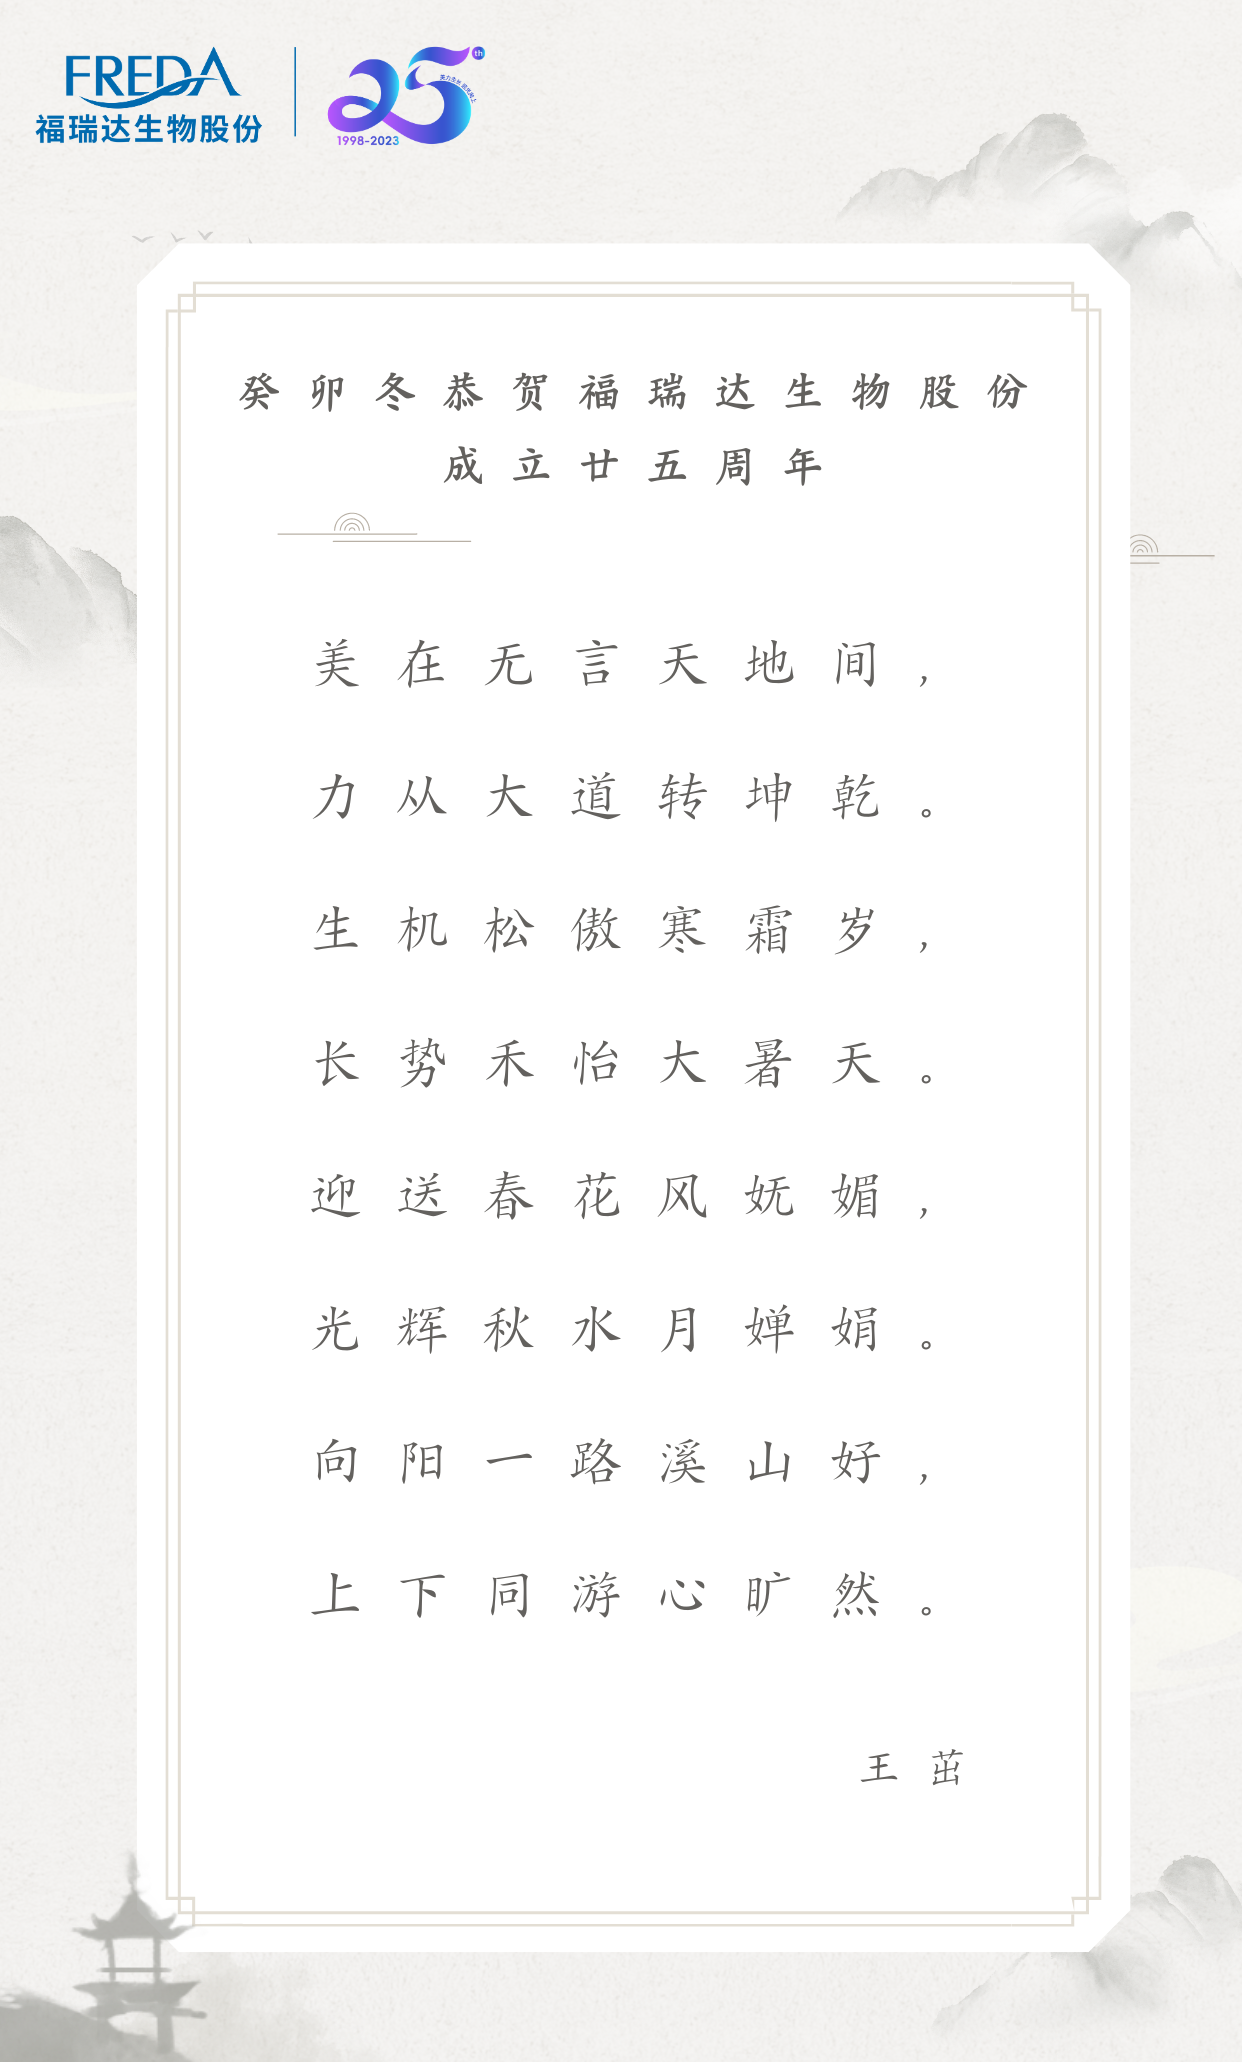 FREDA
福瑞达生物股份
25th
1998-2023
癸卯冬恭贺福瑞达生物股份
成立廿五周年
美在无言天地间，
力从大道转坤乾。
生机松傲寒霜岁，
长势禾怡大暑天。
迎送春花风妩媚，
光辉秋水月婵娟。
向阳一路溪山好，
上下同游心旷然。
王茁